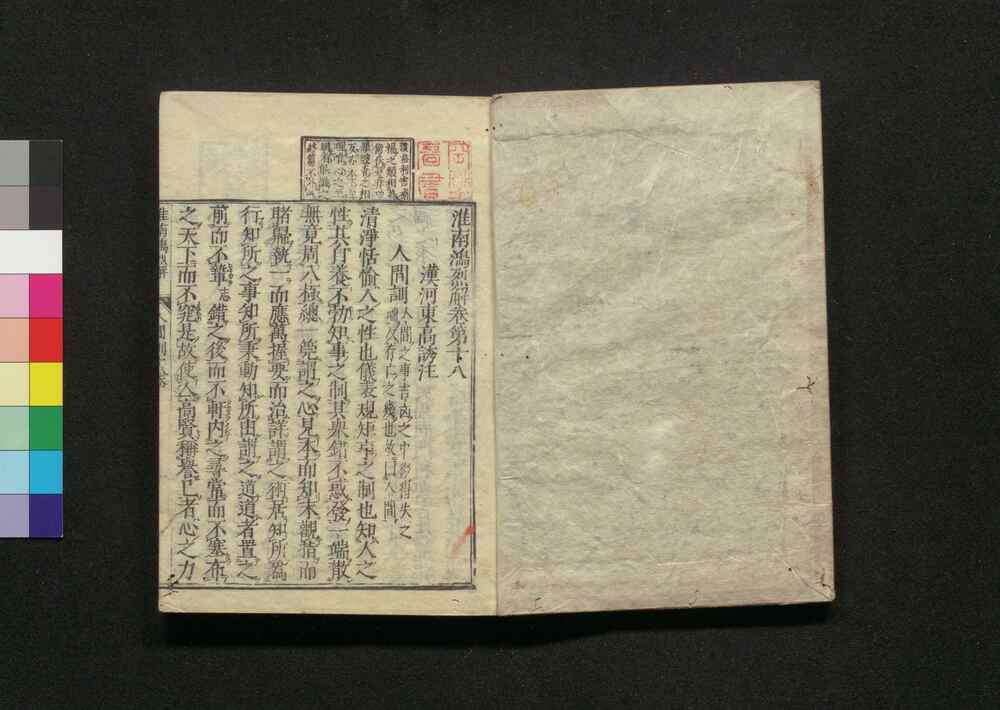 淮南鴻烈解卷第十八
漢河東高誘注
人間訓人間之事吉凶之中徵得失之
端反存亡之幾也故曰人間
清淨恬愉人之性也儀表規矩事之制也知人之
性其自養不勃知事之制其舉錯不惑發一端散
無竟周八極總一筦謂之心見本而知末觀指而
睹歸執一而應萬握要而治詳謂之術居知所為
行知所之事知所秉動知所由謂之道道者置之
前而不𨎌錯之後而不軒內之尋常而不塞布
之天下而不窕是故使人高賢稱譽己者心之力
淮南鴻烈解